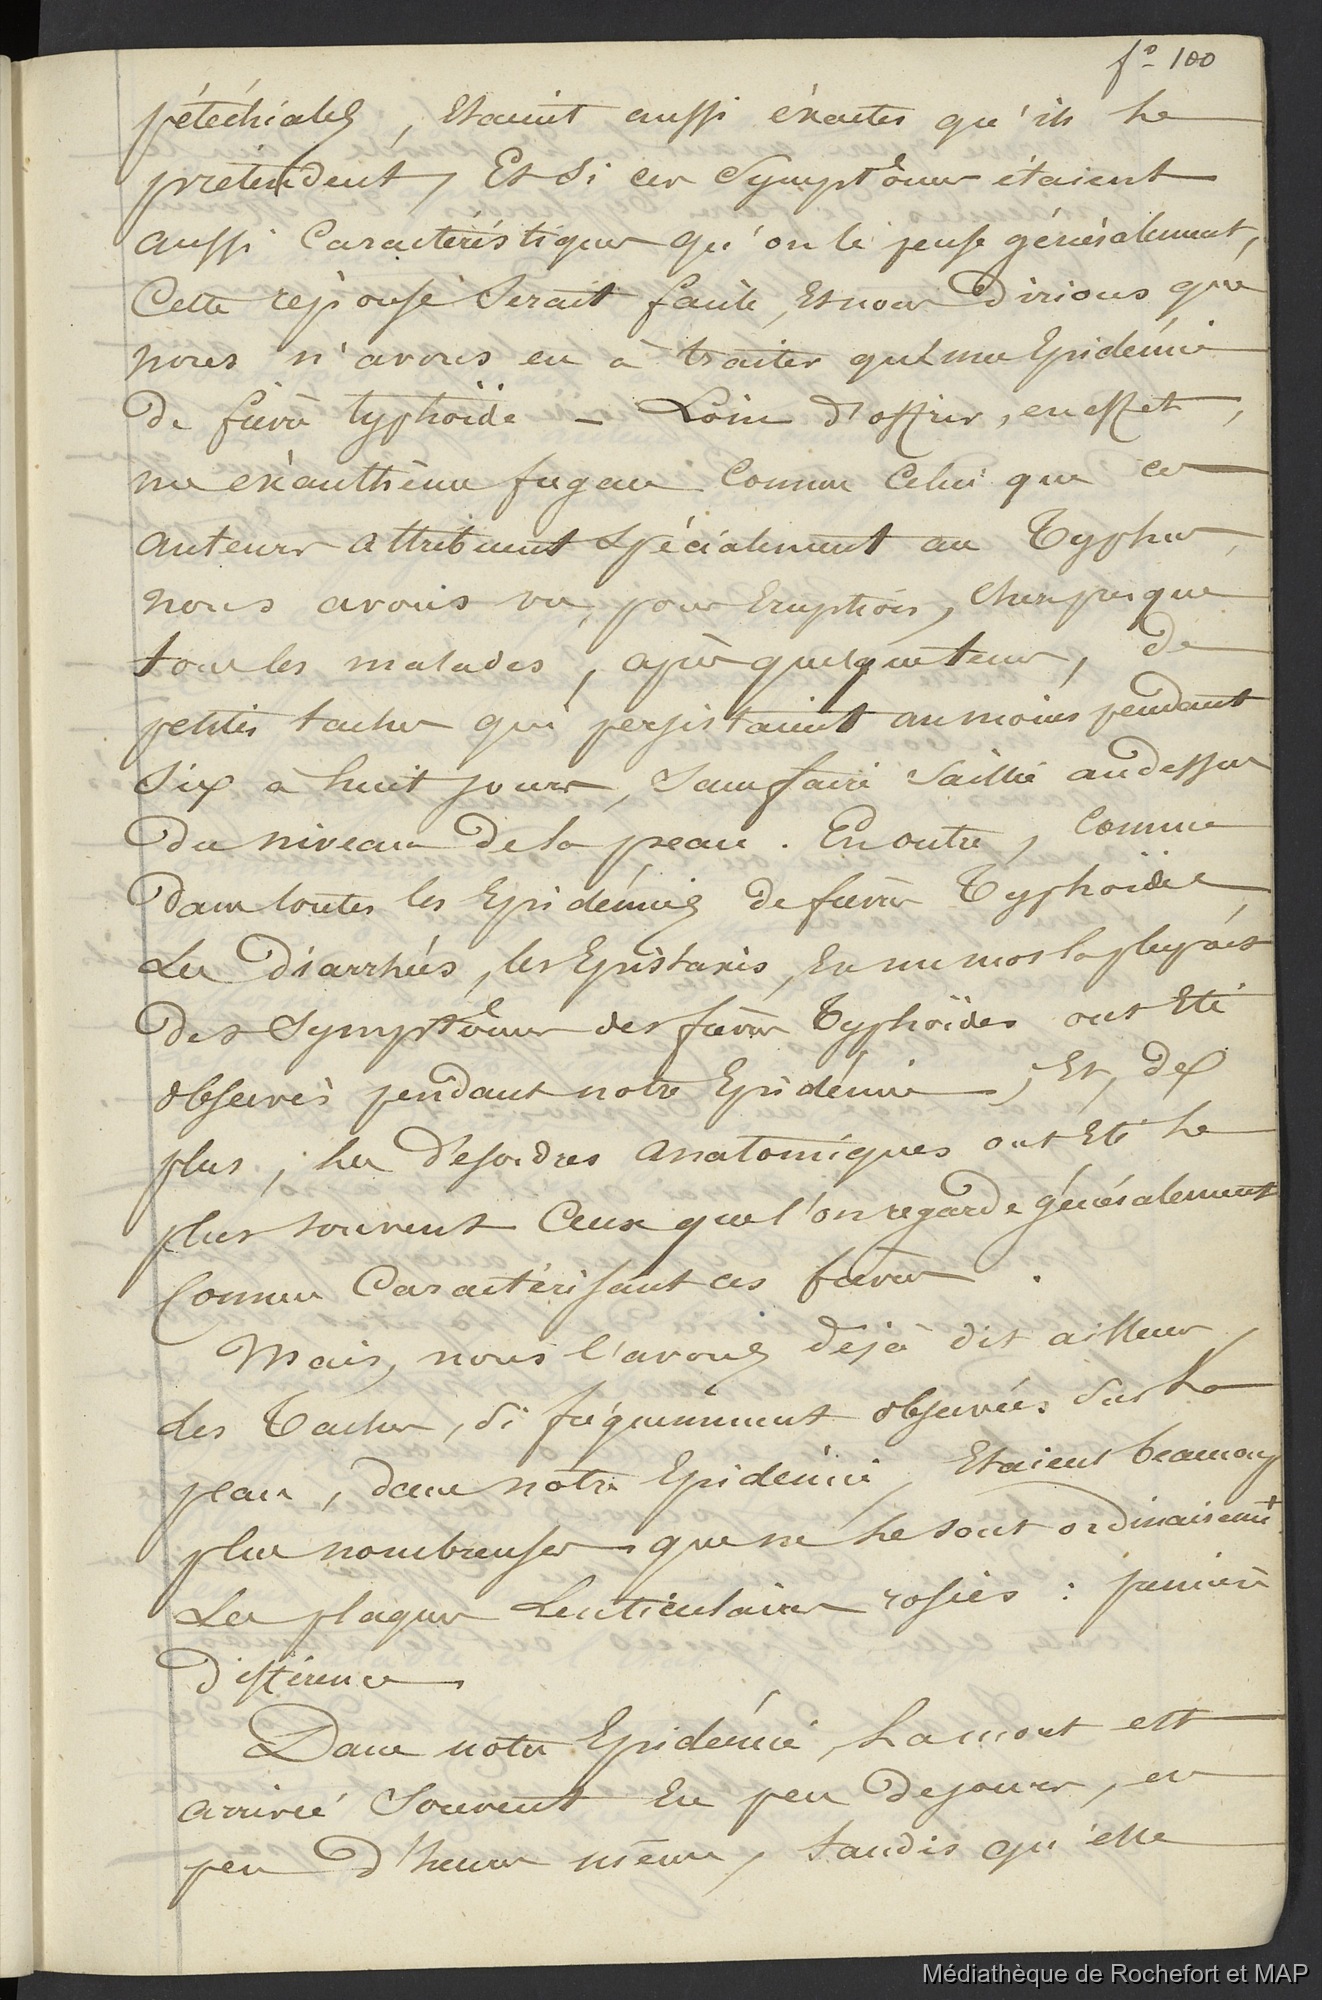 fº 100
pétéchiales, étaient aussi éxactes qu'ils le
prétendent, Et si ces Symptômes étaient
aussi Caractéristiques qu'on le pense généralement,
Cette réponse Serait facile, Et nous Dirions que
nous n'avons eu à traiter qu'une Epidémie
De fièvre typhoïde - Loin d'offrir, en effet,
un exanthème fugace Comme Celui que ces
auteurs attribuent Spécialement au Typhus,
nous avons vu, pour Eruption, Chez presque
tous les malades, après quelque tems, De
petites taches qui persistaient au moins pendant
Six à huit jours, Sans faire Saillie au dessus
Du niveau De la peau. En outre, Comme
Dans toutes les Epidémies De fièvres Typhoïdes
Les Diarrhées, les Epistaxis, En un mot la plupart
Des Symptômes des fièvres Typhoïdes ont Eté
observés pendant notre Epidémie; Et, De
plus, les Désordres anatomiques ont Eté le
plus souvent Ceux que l'on regarde généralement
Comme Caractérisant ces fièvres.
Mais, nous l'avons Déjà dit ailleurs,
des Taches, Si fréquemment observées Sur la
peau, dans notre Epidémie, Etaient beaucoup
plus nombreuses que ne le sont ordinairemt
Les plaques Lenticulaires rosées : première
Différence
Dans notre Epidémie, La mort est
arrivée Souvent En peu De jours, en
peu D'heures même, tandis qu'elle
Médiathèque de Rochefort et MAP